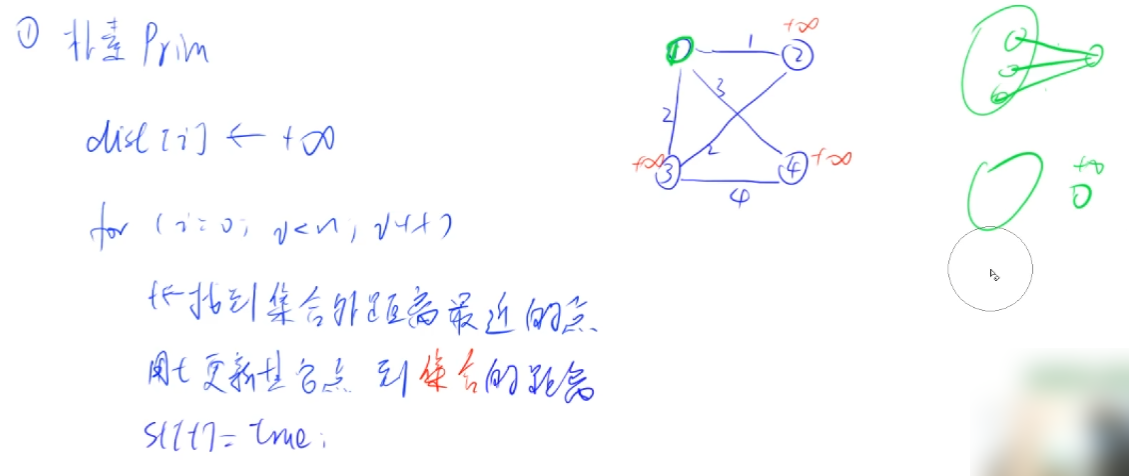 ① 朴素 Prim
dist[i] ← +∞
for (i=0; i<n; i++)
t←找到集合外距离最近的点
用t更新其它点到集合的距离
st[t]=true;
+∞
① 1 ②
2 3
+∞ ③ 2 ④ +∞
4
+∞